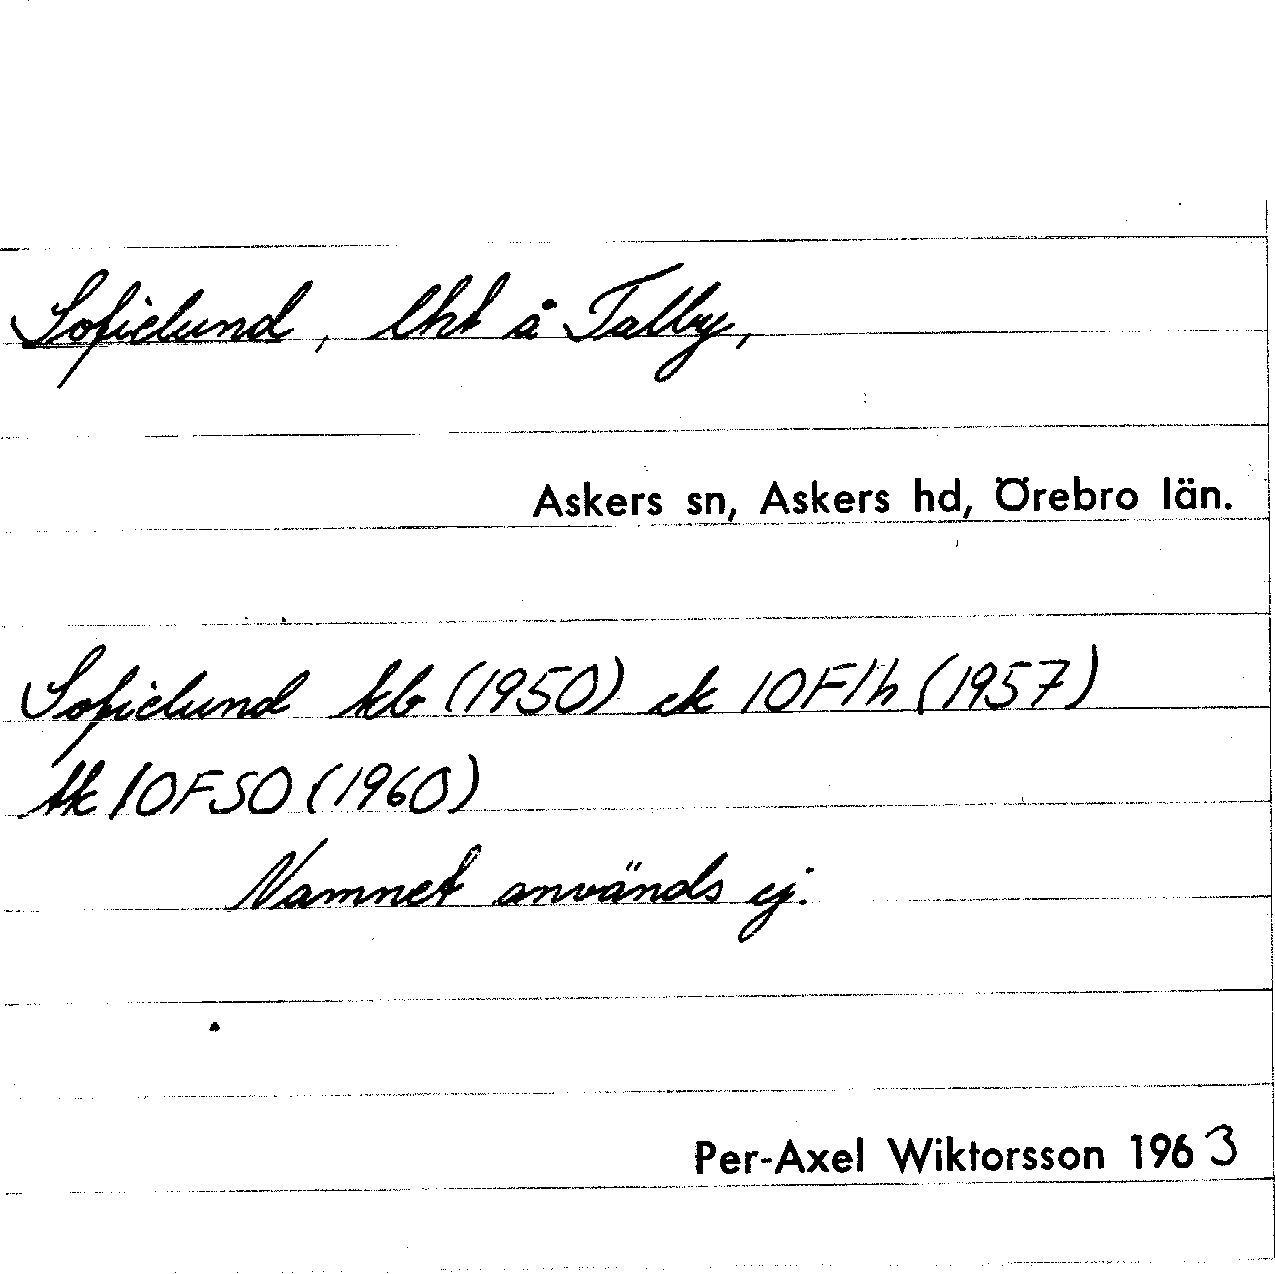 Sofielund, lht å Talby,
Askers sn, Askers hd, Örebro län.
Sofielund kb (1950) ek 10F1h (1957)
tk 10FSO (1960)
Namnet används ej.
Per-Axel Wiktorsson 1963